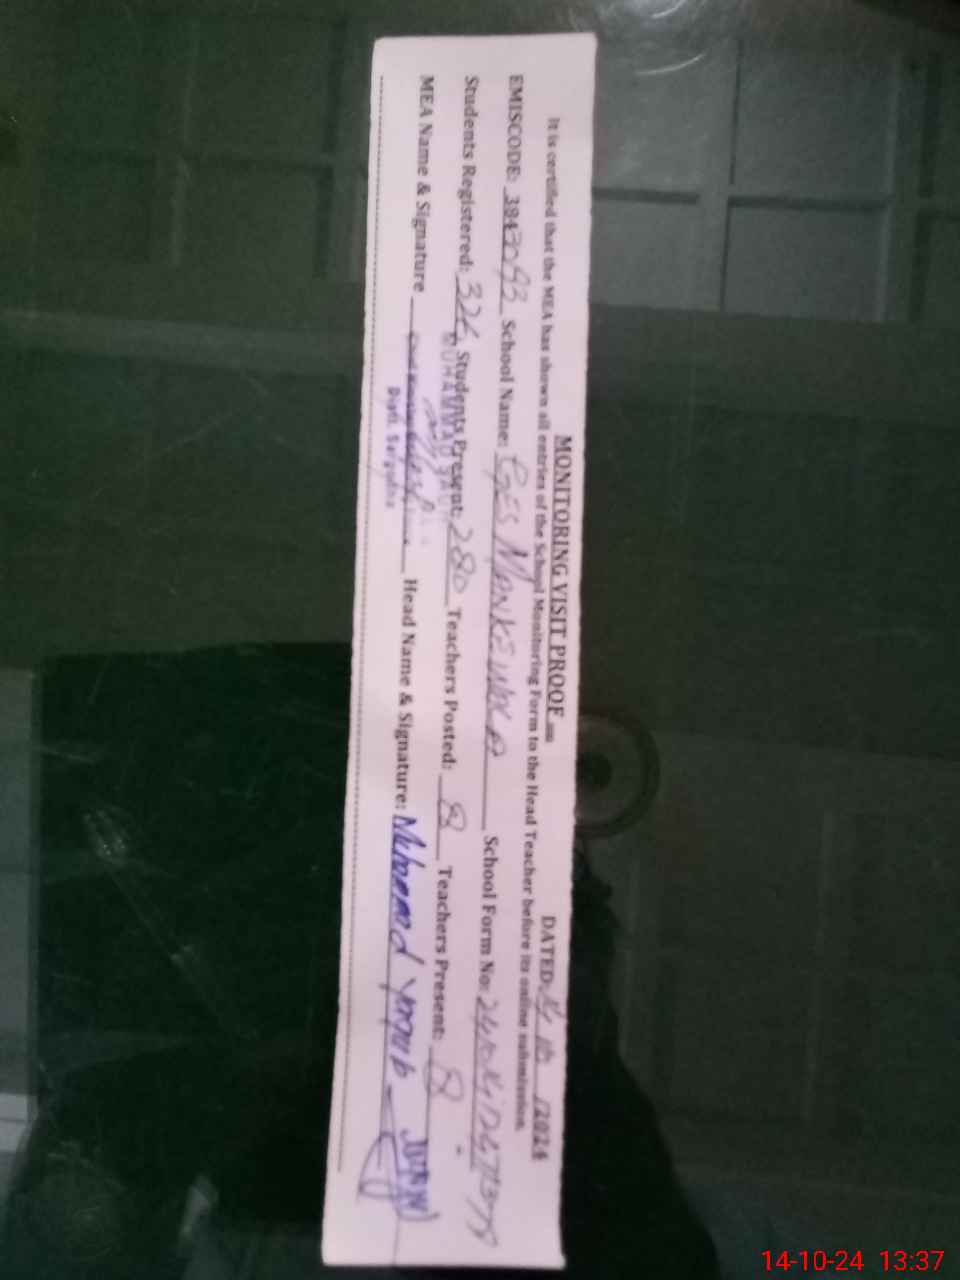 MONITORING VISIT PROOF
DATED: 14 10 /2024
It is certified that the MEA has shown all entries of the School Monitoring Form to the Head Teacher before its online submission.
EMISCODE: School Name: GES MANKEWALA School Form No:
Students Registered: 326 Students Present: 280 Teachers Posted: 8 Teachers Present: 8
MEA Name & Signature Head Name & Signature: Muhammad Yaqub
MUHAMMAD
Distt. Sargodha
14-10-24 13:37